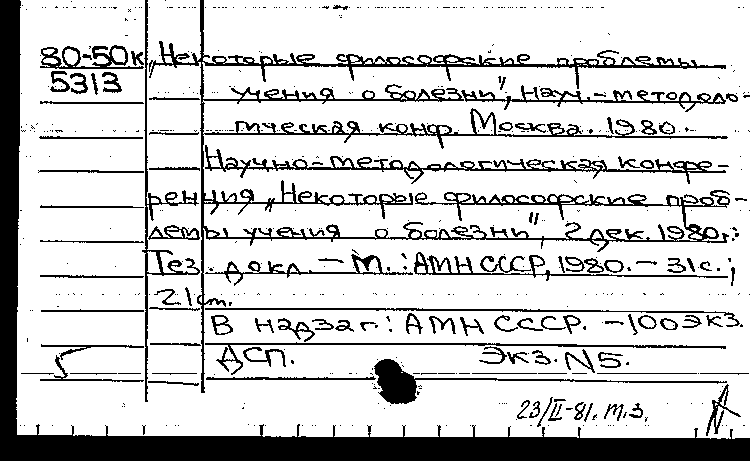 80-50к „Некоторые философские проблемы
5313 учения о болезни", науч.-методоло-
гическая конф. Москва. 1980.
Научно-методологическая конфе-
ренция „Некоторые философские проб-
лемы учения о болезни", 2 дек. 1980г.:
Тез. докл. — М.: АМН СССР, 1980. — 31с.;
21см.
В надзаг.: АМН СССР. — 100экз.
ДСП. Экз. N5.
23/II-81. т.з.